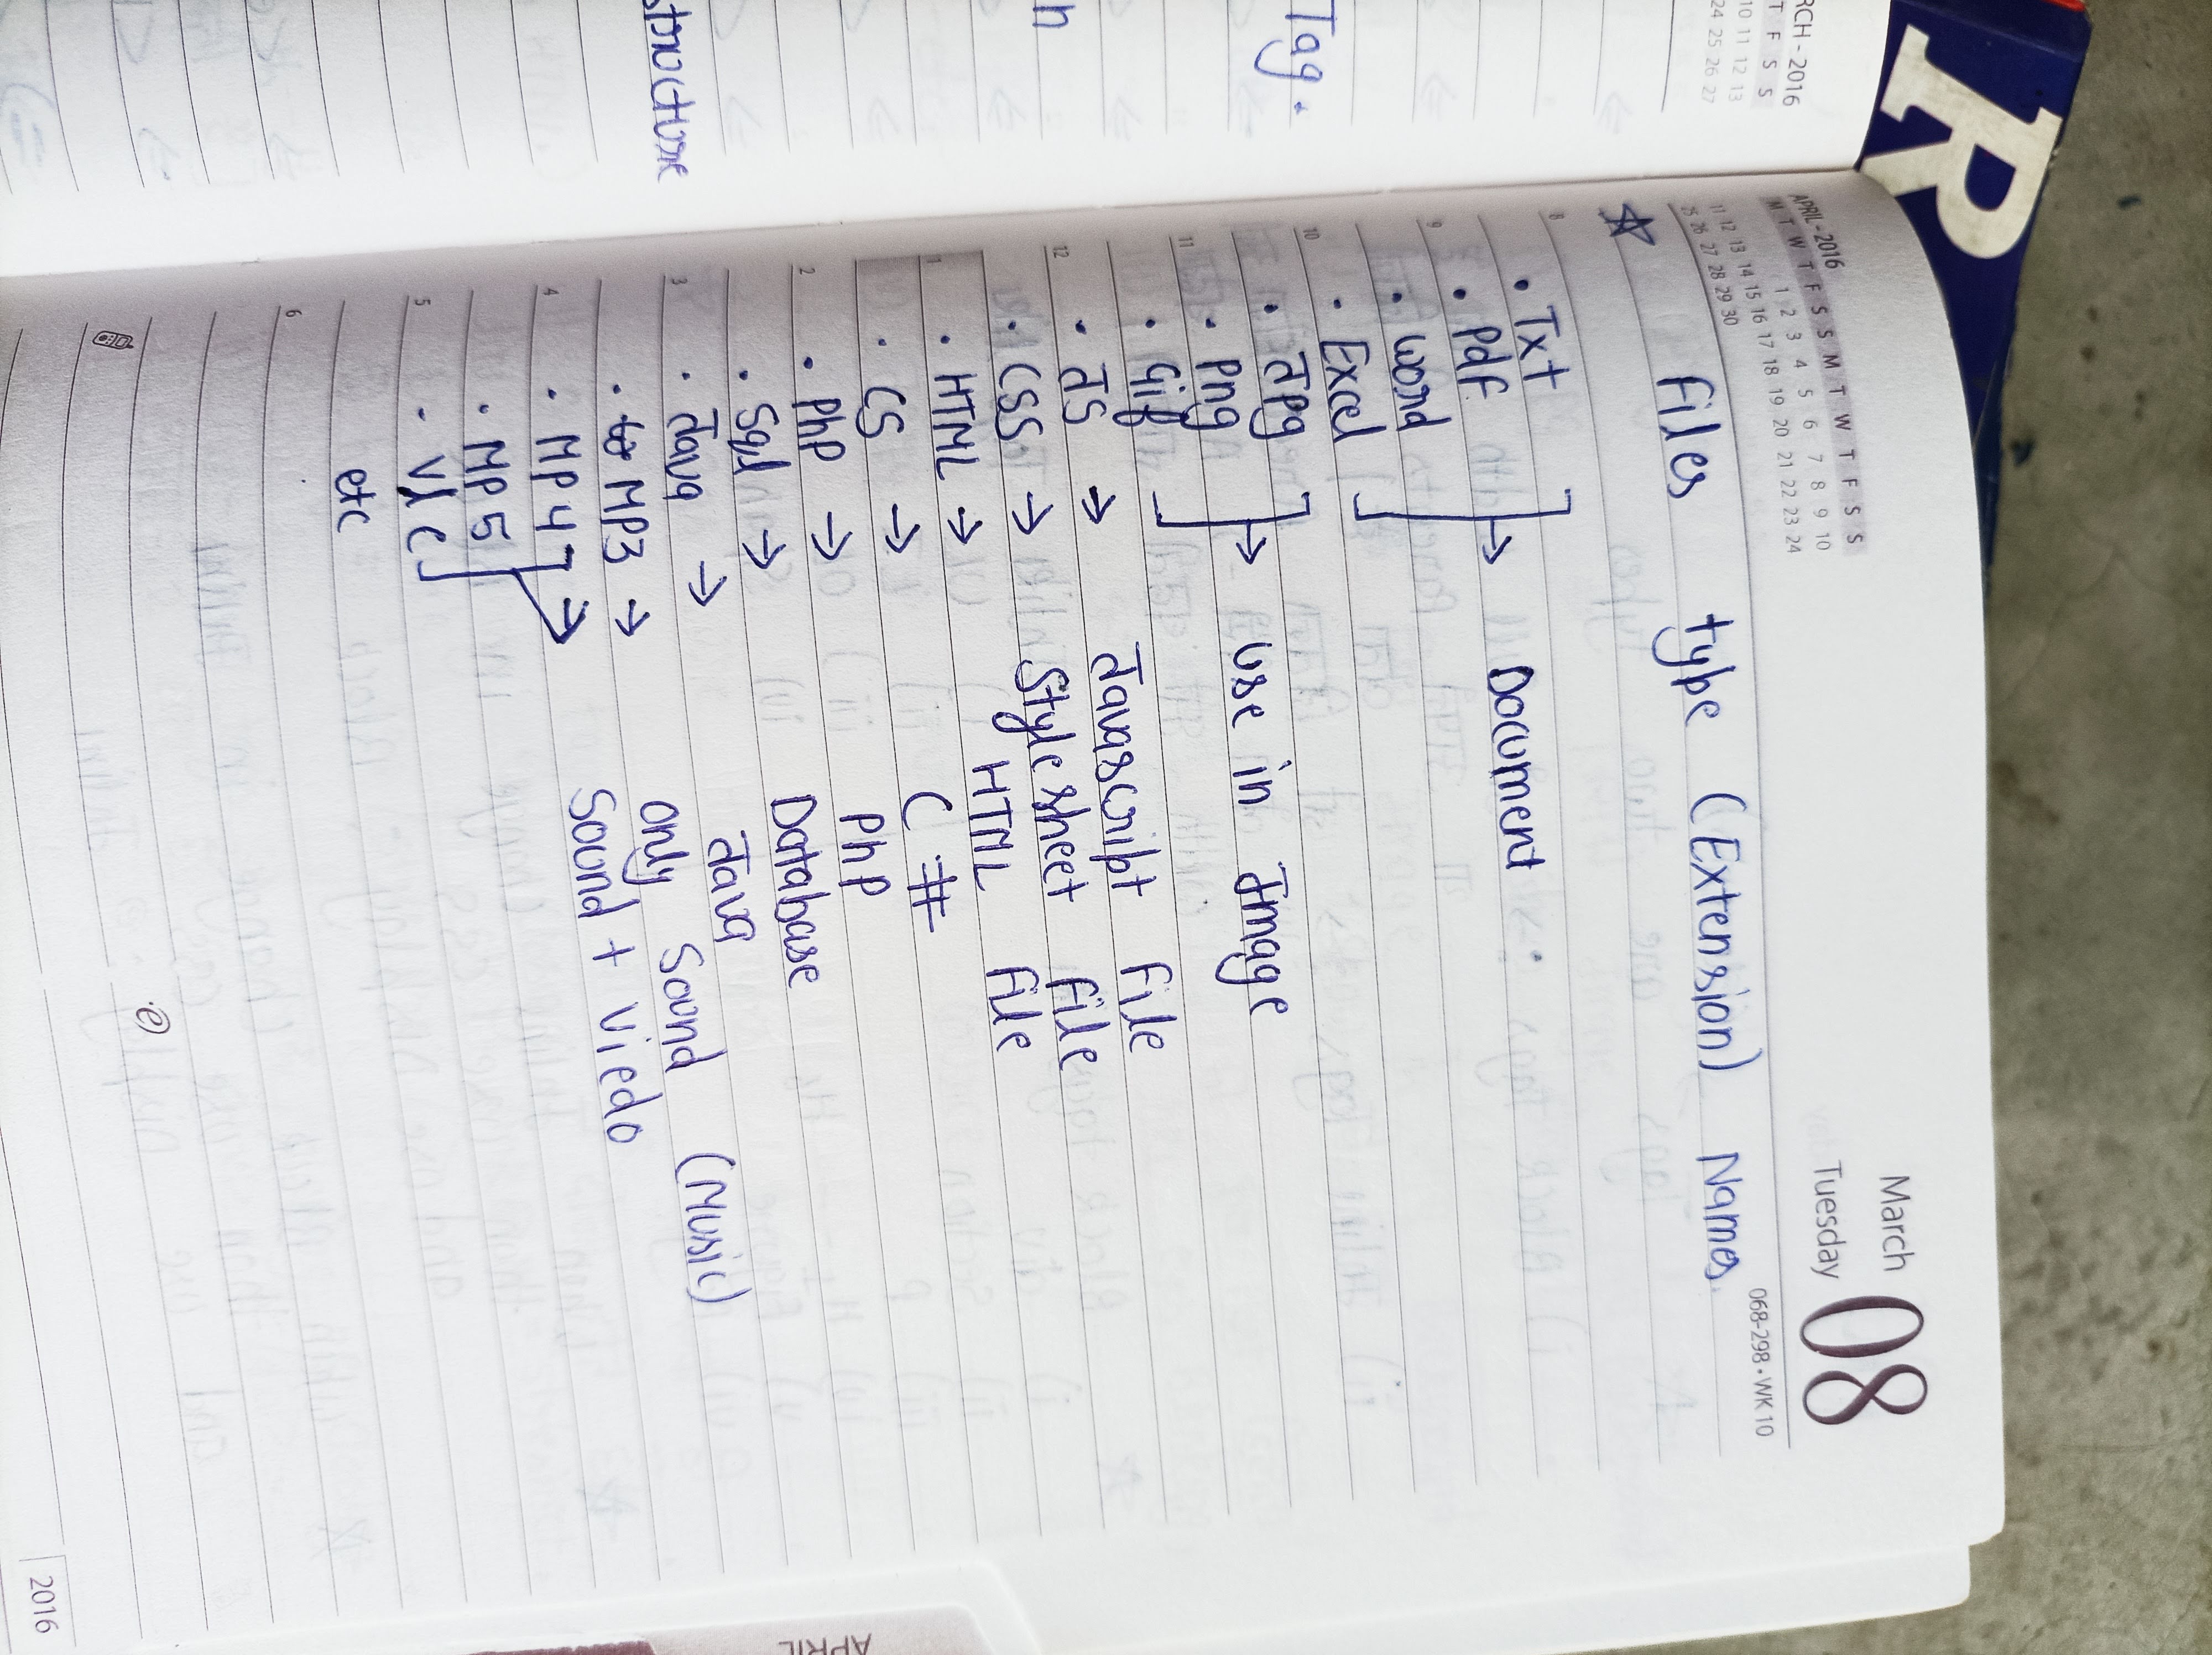 RCH - 2016
T F S S
10 11 12 13
24 25 26 27
Tag.
h
structure
R
APRIL - 2016
M T W T F S S M T W T F S S
1 2 3 4 5 6 7 8 9 10
11 12 13 14 15 16 17 18 19 20 21 22 23 24
25 26 27 28 29 30
March
Tuesday
08
068-298 • WK 10
☆ Files type (Extension) Names.
8
• Txt
• Pdf
9
• word → Document
• Excel
10
• Jpg
• Png → use in Image
11
• Gif
• JS → Javascript File
12
• CSS → Style sheet File
• HTML → HTML File
1
• CS → C #
• Php → Php
2
• Sql → Database
• Java → Java
3
• MP3 → only Sound (Music)
• MP4
4
• MP5 → Sound + Viedo
• Vlc
5
etc
6
e
2016
APRIL